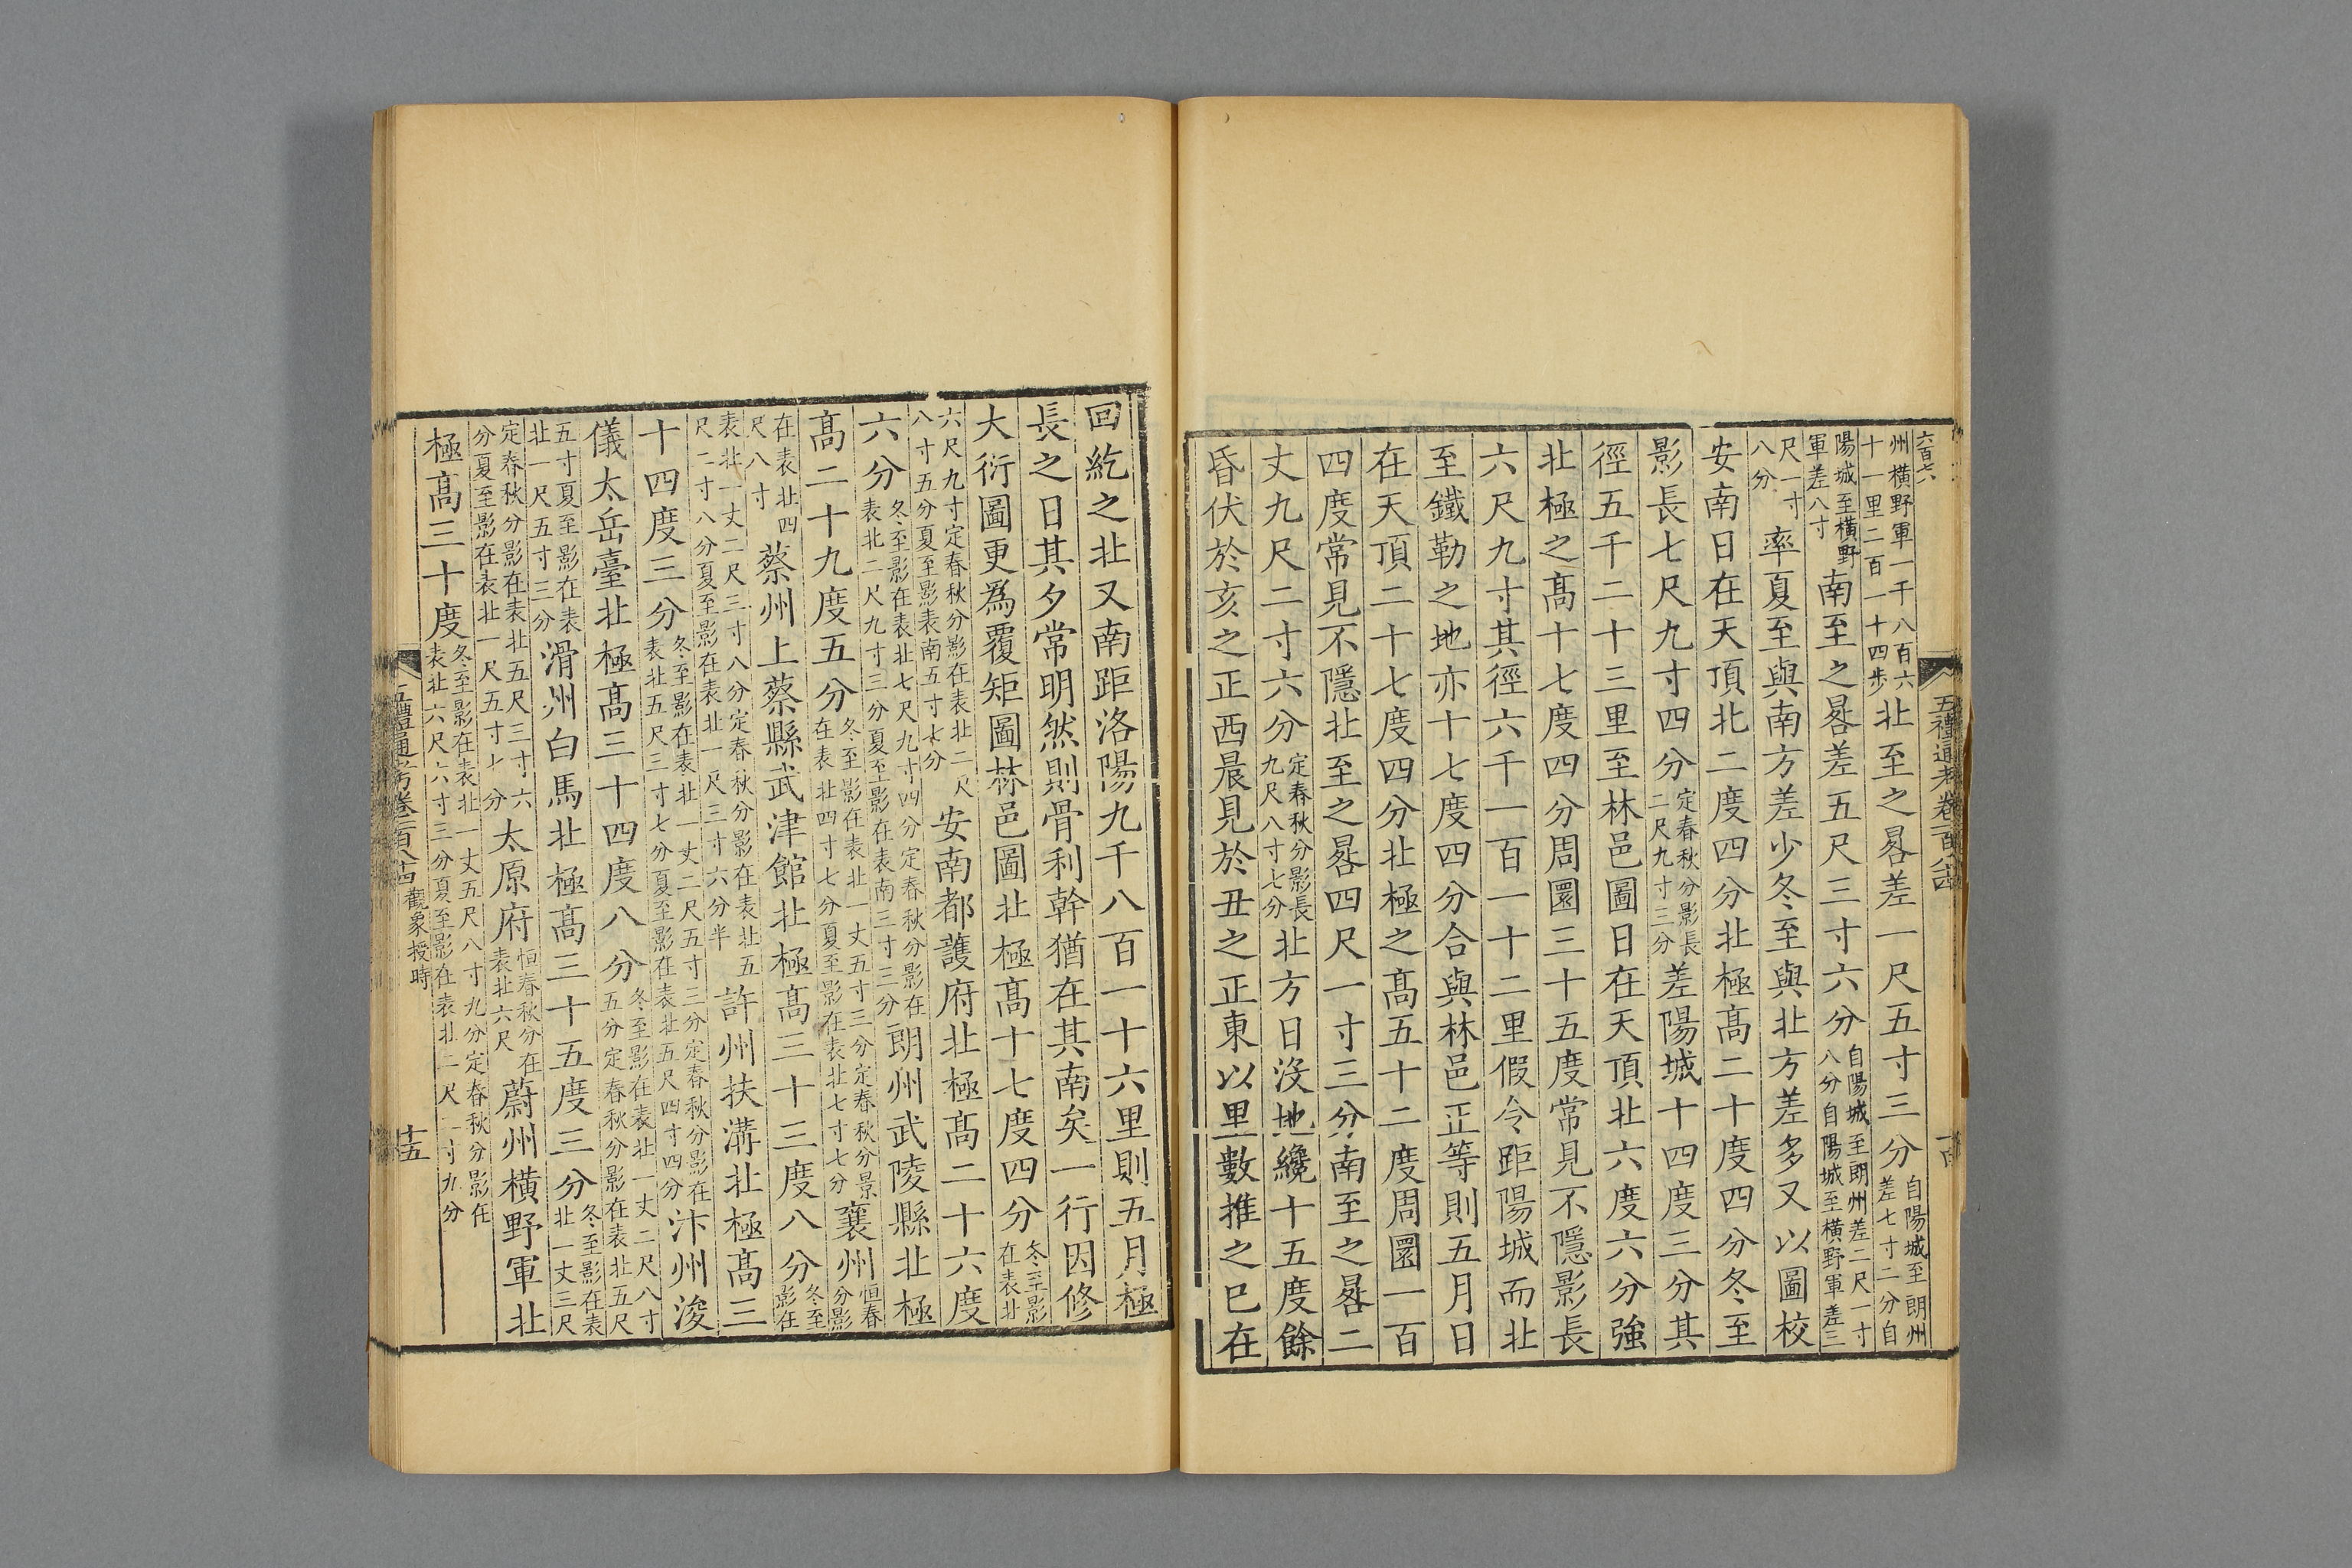 六百七
州橫野軍一千八百六十一里二百一十四步北至之晷差一尺五寸三分自陽城至朗州差七寸二分自
陽城至橫野軍差八寸南至之晷差五尺三寸六分自陽城至朗州差二尺一寸八分自陽城至橫野軍差三
尺一寸八分率夏至與南方差少冬至與北方差多又以圖校
安南日在天頂北二度四分北極高二十度四分冬至
影長七尺九寸四分定春秋分影長二尺九寸三分差陽城十四度三分其
徑五千二十三里至林邑圖日在天頂北六度六分強
北極之高十七度四分周圜三十五度常見不隱影長
六尺九寸其徑六千一百一十二里假令距陽城而北
至鐵勒之地亦十七度四分合與林邑正等則五月日
在天頂二十七度四分北極之高五十二度周圜一百
四度常見不隱北至之晷四尺一寸三分南至之晷二
丈九尺二寸六分定春秋分影長九尺八寸七分北方日沒地纔十五度餘
昏伏於亥之正西晨見於丑之正東以里數推之巳在
回紇之北又南距洛陽九千八百一十六里則五月極
長之日其夕常明然則骨利幹猶在其南矣一行因修
大衍圖更為覆矩圖林邑圖北極高十七度四分冬至影在表北
六尺九寸定春秋分影在表北二尺八寸五分夏至影表南五寸七分安南都護府北極高二十六度
六分冬至影在表北七尺九寸四分定春秋分影在表北二尺九寸三分夏至影在表南三寸三分朗州武陵縣北極
高二十九度五分冬至影在表北一丈五寸三分定春秋分景在表北四寸七分夏至影在表北七寸七分襄州恒春分影
在表北四尺八寸蔡州上蔡縣武津館北極高三十三度八分冬至影在
表北一丈二尺三寸八分定春秋分影在表北五尺二寸八分夏至影在表北一尺三寸六分半許州扶溝北極高三
十四度三分冬至影在表北一丈二尺五寸三分定春秋分影在表北五尺三寸七分夏至影在表北五尺四寸四分汴州浚
儀太岳臺北極高三十四度八分冬至影在表北一丈二尺八寸五分定春秋分影在表北五尺
五寸夏至影在表北一尺五寸三分滑州白馬北極高三十五度三分冬至影在表北一丈三尺
定春秋分影在表北五尺三寸六分夏至影在表北一尺五寸七分太原府恒春秋分在表北六尺蔚州橫野軍北
極高三十度冬至影在表北一丈五尺八寸九分定春秋分影在表北六尺六寸三分夏至影在表北二尺二寸九分
五禮通考卷一百八十四 觀象授時
十五